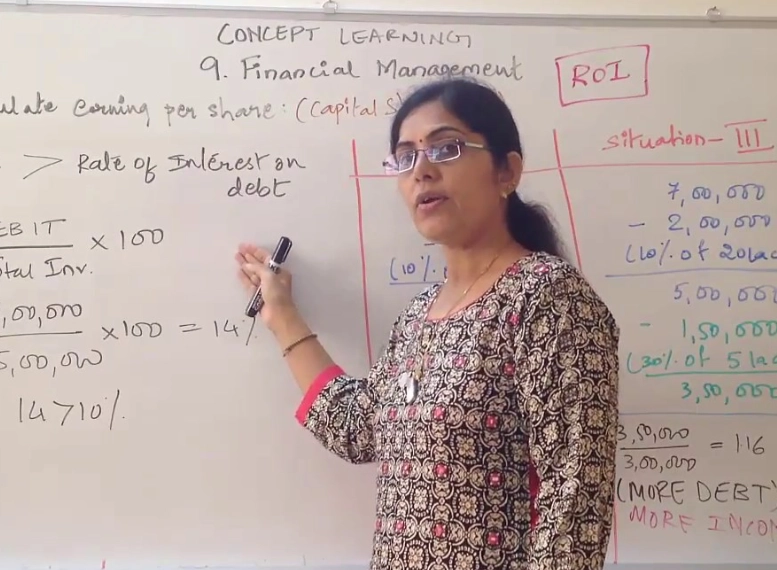 CONCEPT LEARNING
9. Financial Management
ROI
ulate earning per share: (Capital S
> Rate of Interest on
debt
EBIT
tal Inv.
× 100
,00,000
5,00,000
×100 = 14%
14 > 10%
(10%
Situation - III
7,00,000
- 2,00,000
(10% of 20 lac
5,00,000
- 1,50,000
(30% of 5 lac
3,50,000
3,50,000
3,00,000
= 116
(MORE DEBT)
MORE INCOM